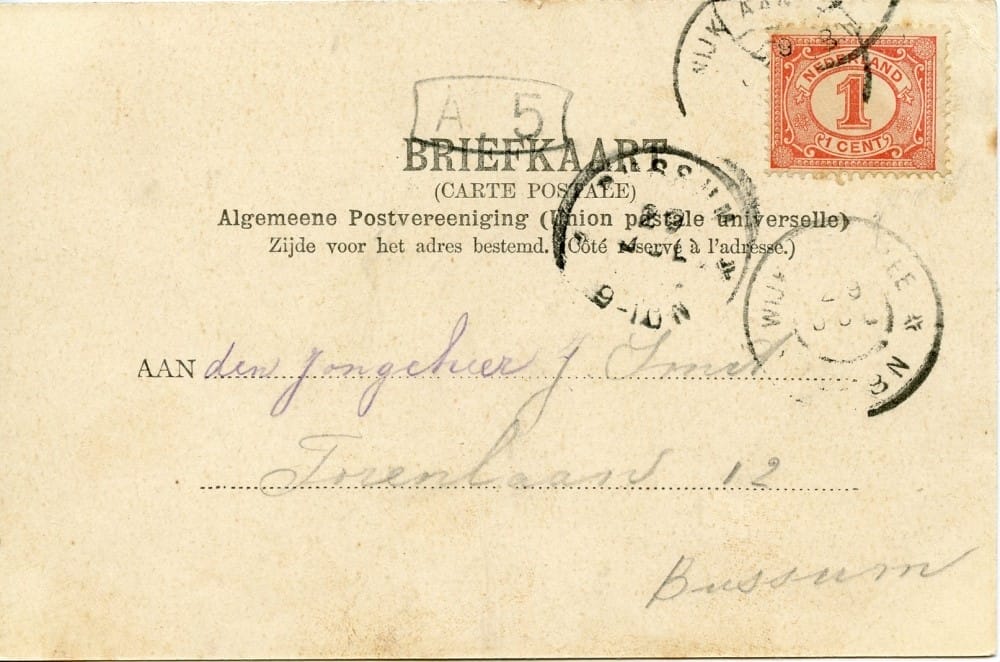 WIJK AAN
NEDERLAND
1
1 CENT
A 5
BRIEFKAART
(CARTE POSTALE)
Algemeene Postvereeniging (Union postale universelle)
Zijde voor het adres bestemd. (Côté réservé à l'adresse.)
BUSSUM
9-10N
WIJK ZEE
8N
AAN den Jongeheer J. Smit
Torenlaan 12
Bussum